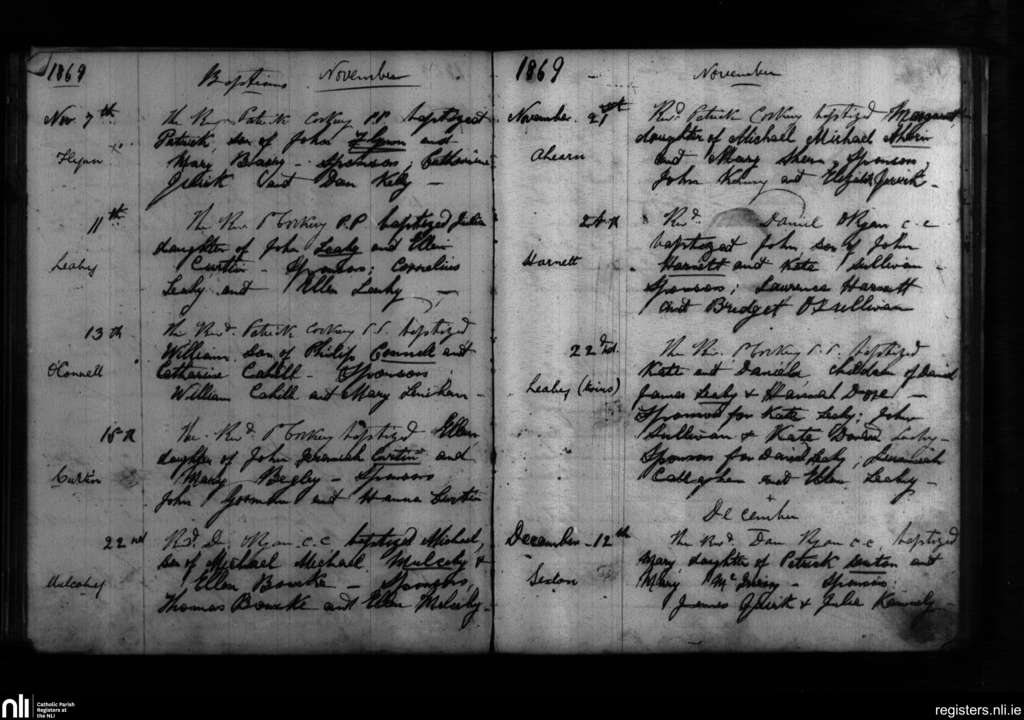 1869
Baptisms November
Nov. 7th The Rev Patrick Corkery P.P. baptized
Patrick, son of John Flynn and
Flynn
Mary - Sponsors; Catherine
Quirk and Dan Kely -
11th The Rev. P Corkery P.P. baptized Julia
daughter of John Leahy and Ellen
Leahy
Curtin - Sponsors; Cornelius
Leahy and Ellen Leahy -
13th The Revd. Patrick Corkery P.P. baptized
William, son of Philip Connell and
O'Connell
Catherine Cahill - Sponsors;
William Cahill and Mary Linehan -
18th The Revd P Corkery baptized Ellen
daughter of John Jeremiah Curtin and
Curtin
Mary Begley - Sponsors
John Gorman and Hanna Curtin
22nd Revd. D. Ryan c.c baptized Michael,
son of Michael Michael Mulcahy &
Mulcahy
Ellen Bourke - Sponsors,
Thomas Bourke and Ellen Mulcahy -
1869
November
November 21st Revd. Patrick Corkery baptized Margaret
daughter of Michael Michael Ahern
Ahearn
and Mary - Sponsors,
John Kenny and Quirk -
24th Revd. Daniel O'Ryan c-c
baptized John, son of John
Harnett
Harnett and Kate Sullivan -
Sponsors; Laurence Harnett
and Bridget O'Sullivan
22nd. The Rev. P Corkery P.P. baptized
Kate and Daniel, children of Daniel
Leahy (twins)
James Leahy & Hannah Dore -
Sponsors for Kate Leahy; John
Sullivan & Kate Leahy -
Sponsors for Daniel Leahy, Jeremiah
Callaghan and Ellen Leahy -
December
December - 12th The Revd. Dan Ryan c.c. baptized
Mary, daughter of Patrick Sexton and
Sexton
Mary - Sponsors:
James Quirk & Julia Kennely -
nli
Catholic Parish
Registers at
the NLI
registers.nli.ie